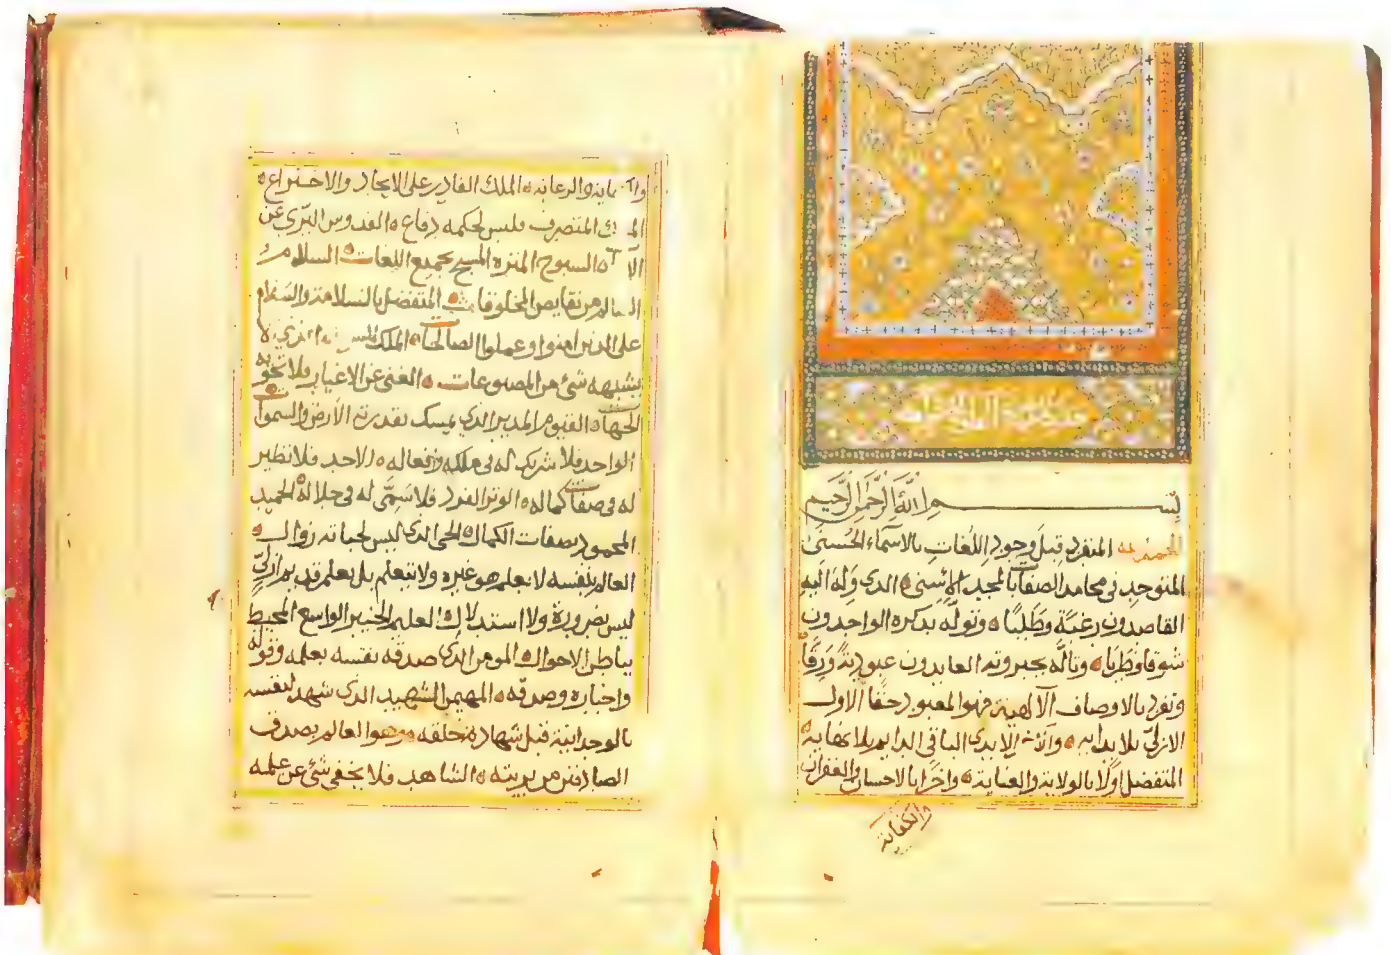 بسم الله الرحمن الرحيم
الحمد لله المنفرد قبل وجود اللغات بالاسماء الحسنى
المتوحد في محامد الصفات بالمجد الاسنى ه الذي وله اليه
القاصدون رغبة وطلبا ه وتوله بذكره الواجدون
شوقا وطربا ه وتأله بجبروته العابدون عبودية ورقا
وتفرد بالاوصاف الآلهية فهو المعبود حقا الاول
الازلي بلا بداية ه والآخر الابدي الباقي الدايم بلا نهاية ه
المتفضل اولا بالولاية والعناية ه واخرا بالاحسان والغفران
والكفاية
والرعاية ه الملك القادر على الايجاد والاختراع ه
المتصرف فليس لحكمه دفاع ه القدوس البري عن
السبوح المنزه المسبح بجميع اللغات ه السلام
السالم من نقايص المخلوقات ه المتفضل بالسلامة والسلام
على الذين امنوا وعملوا الصالحات ه الملك الذي لا
يشبهه شئ من المصنوعات ه الغني عن الاغيار فلا تحويه
الجهات ه القيوم المدبر الذي يمسك بقدرته الأرض والسموات ه
الواحد فلا شريك له في ملكه وافعاله ه الاحد فلا نظير
له في صفات كماله ه الوتر الفرد فلا سمي له في جلاله ه الحميد
المحمود بصفات الكمال ه الحي الذي ليس لحياته زوال ه
العالم بنفسه لا بعلم هو غيره ولا بتعلم بل بعلم قديم ازلي
ليس بضرورة ولا استدلال ه العليم الخبير الواسع المحيط
بباطن الاحوال ه المومن الذي صدق نفسه بعلمه وقوله
واخباره وصدقه ه المهيمن الشهيد الذي شهد لنفسه
بالوحدانية قبل شهادة خلقه وهو العالم بصدق
الصادقين من بريته ه الشاهد فلا يخفى شئ عن علمه